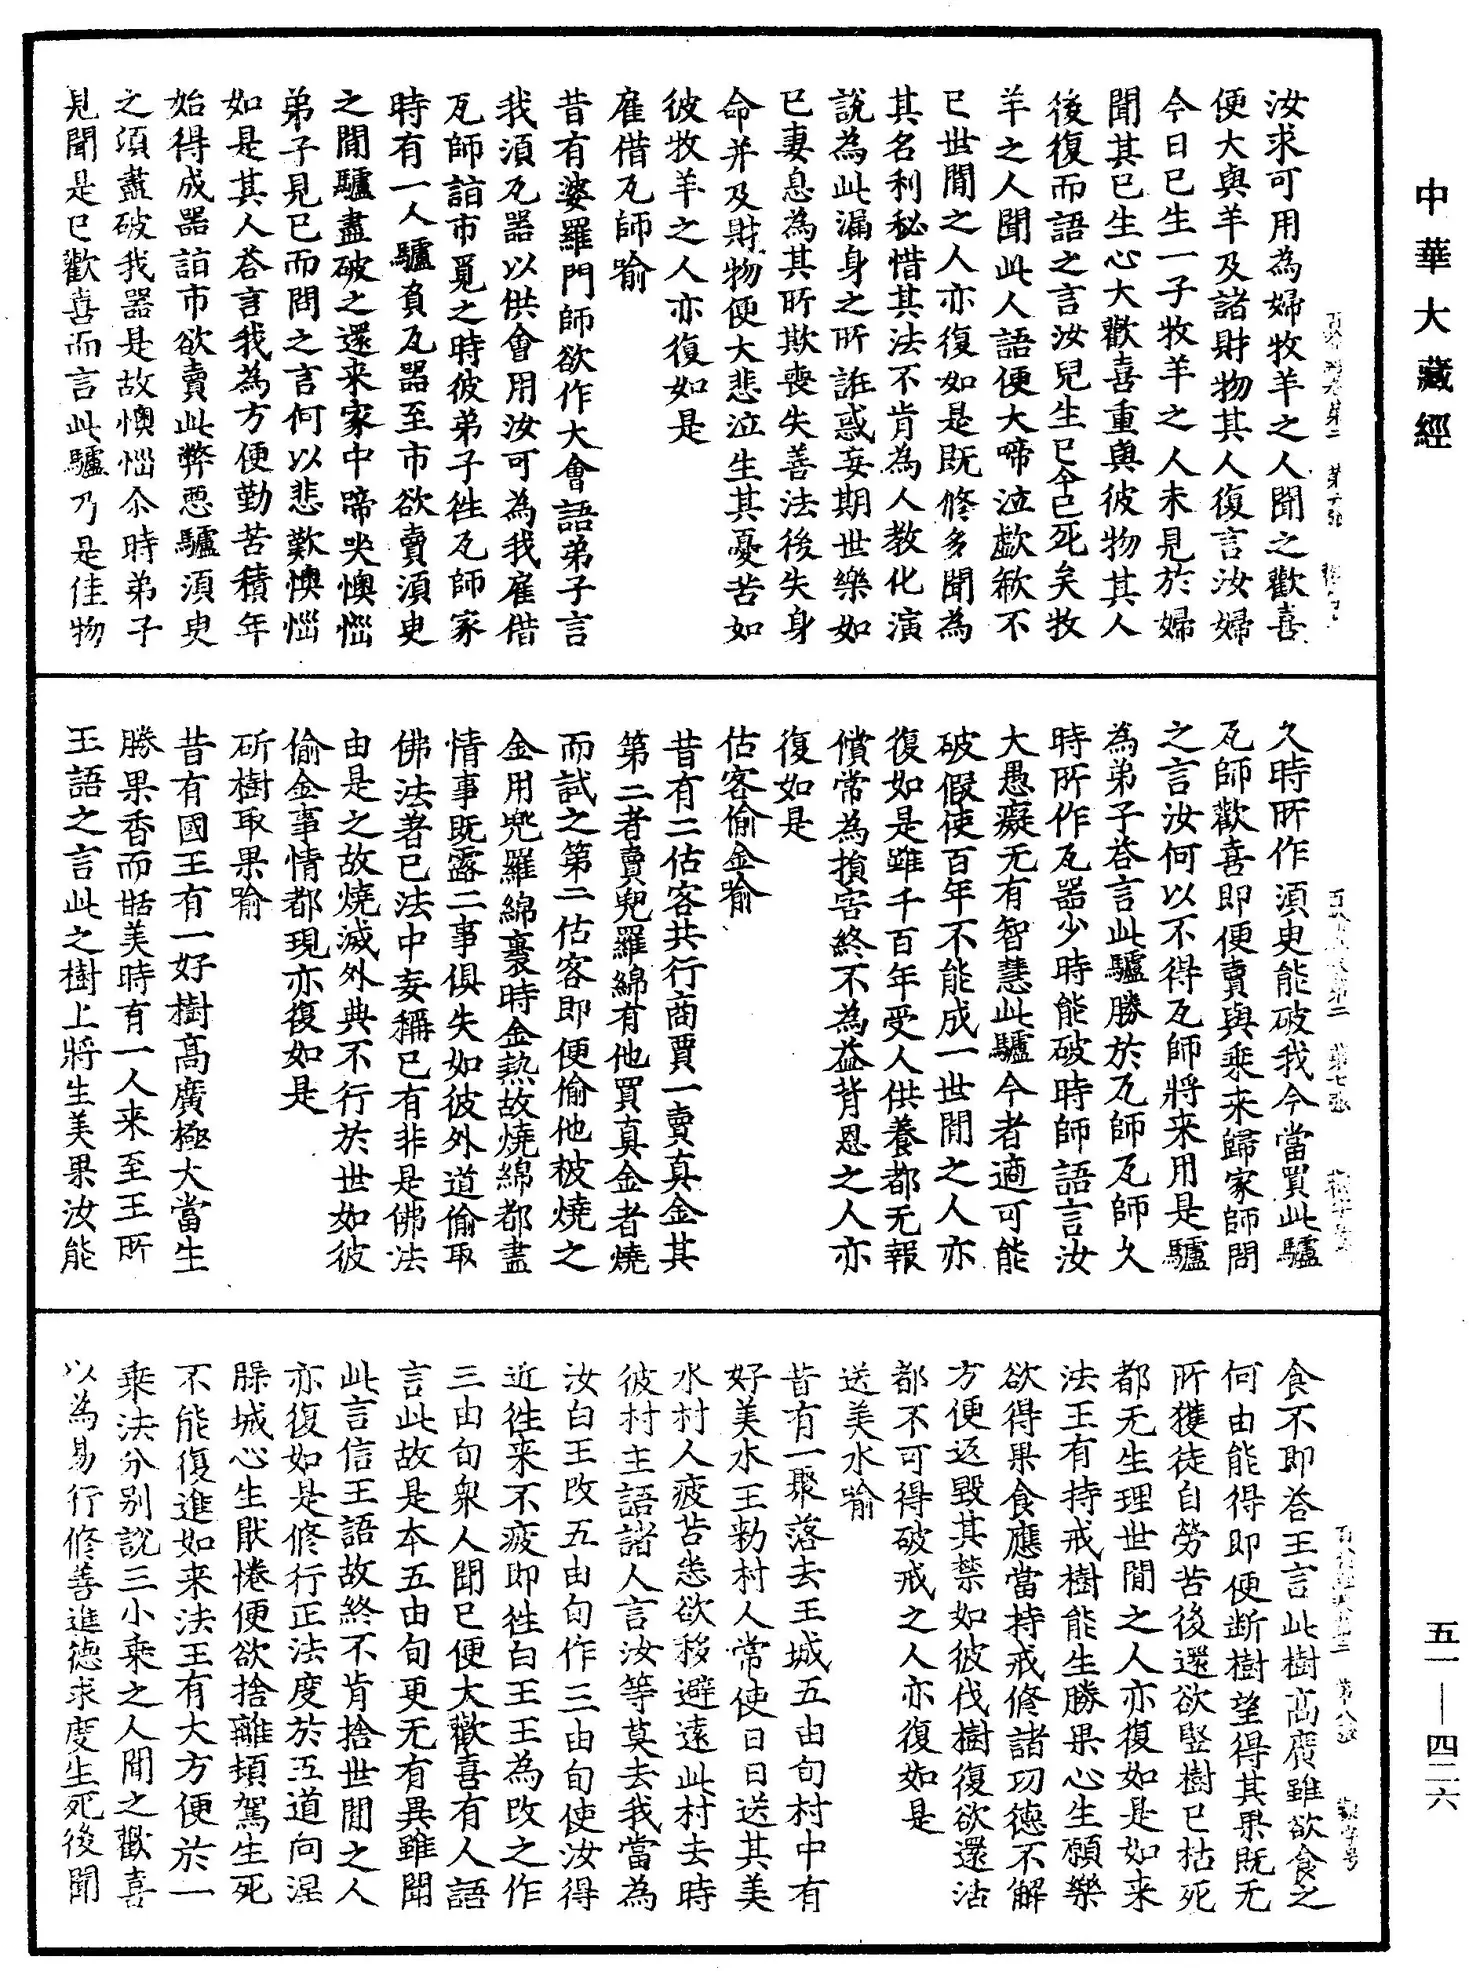 中華大藏經
汝求可用為婦牧羊之人聞之歡喜
便大與羊及諸財物其人復言汝婦
今日已生一子牧羊之人未見於婦
聞其已生心大歡喜重與彼物其人
後復而語之言汝兒生已今已死矣牧
羊之人聞此人語便大啼泣歔欷不
已世間之人亦復如是既修多聞為
其名利秘惜其法不肯為人教化演
說為此漏身之所誑惑妄期世樂如
已妻息為其所欺喪失善法後失身
命并及財物便大悲泣生其憂苦如
彼牧羊之人亦復如是
雇借瓦師喻
昔有婆羅門師欲作大會語弟子言
我須瓦器以供會用汝可為我雇借
瓦師詣市覓之時彼弟子往瓦師家
時有一人驢負瓦器至市欲賣須臾
之間驢盡破之還来家中啼哭懊惱
弟子見已而問之言何以悲歎懊惱
如是其人荅言我為方便勤苦積年
始得成器詣市欲賣此弊惡驢須臾
之須盡破我器是故懊惱尒時弟子
見聞是已歡喜而言此驢乃是佳物
久時所作須臾能破我今當買此驢
瓦師歡喜即便賣與乘来歸家師問
之言汝何以不得瓦師將来用是驢
為弟子荅言此驢勝於瓦師瓦師久
時所作瓦器少時能破時師語言汝
大愚癡无有智慧此驢今者適可能
破假使百年不能成一世間之人亦
復如是雖千百年受人供養都无報
償常為損害終不為益背恩之人亦
復如是
估客偷金喻
昔有二估客共行商賈一賣真金其
第二者賣兜羅綿有他買真金者燒
而試之第二估客即便偷他被燒之
金用兜羅綿裹時金熱故燒綿都盡
情事既露二事俱失如彼外道偷取
佛法著已法中妄稱已有非是佛法
由是之故燒滅外典不行於世如彼
偷金事情都現亦復如是
斫樹取果喻
昔有國王有一好樹高廣極大當生
勝果香而甜美時有一人来至王所
王語之言此之樹上將生美果汝能
食不即荅王言此樹高廣雖欲食之
何由能得即便断樹望得其果既无
所獲徒自勞苦後還欲竪樹已枯死
都无生理世間之人亦復如是如来
法王有持戒樹能生勝果心生願樂
欲得果食應當持戒修諸功德不解
方便返毀其禁如彼伐樹復欲還活
都不可得破戒之人亦復如是
送美水喻
昔有一聚落去王城五由旬村中有
好美水王勑村人常使日日送其美
水村人疲苦悉欲移避遠此村去時
彼村主語諸人言汝等莫去我當為
汝白王改五由旬作三由旬使汝得
近往来不疲即往白王王為改之作
三由旬衆人聞已便大歡喜有人語
言此故是本五由旬更无有異雖聞
此言信王語故終不肯捨世間之人
亦復如是修行正法度於五道向涅
臊城心生猒惓便欲捨離頓駕生死
不能復進如来法王有大方便於一
乘法分别說三小乘之人聞之歡喜
以為易行修善進德求度生死後聞
五一—四二六